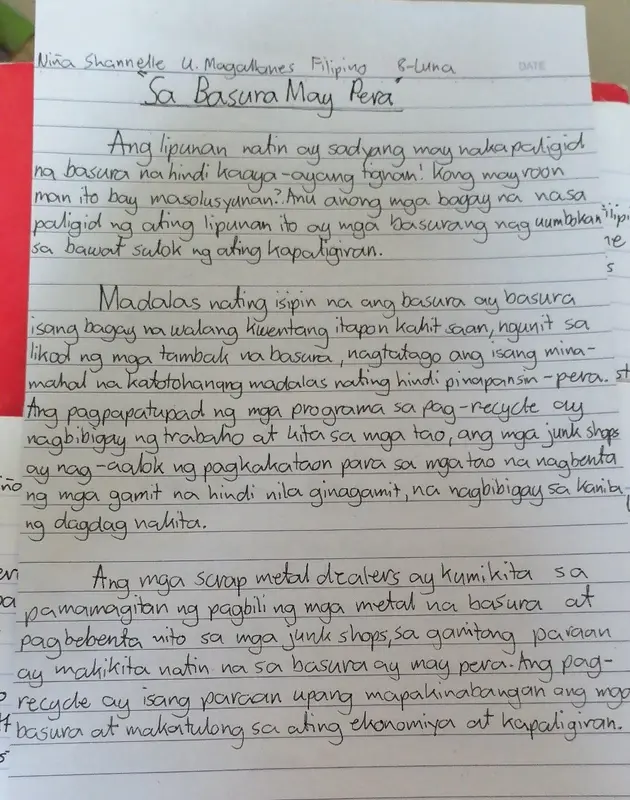 Niña Shannelle U. Magallanes Filipino 8-Luna DATE
"Sa Basura May Pera"
Ang lipunan natin ay sadyang may naka paligid
na basura na hindi kaaya-ayang tignan! Kong mayroon
man ito bay masolusyunan? Anu anong mga bagay na nasa
paligid ng ating lipunan ito ay mga basurang nag uumbokan
sa bawat sulok ng ating kapaligiran.
Madalas nating isipin na ang basura ay basura
isang bagay na walang kwentang itapon kahit saan, ngunit sa
likod ng mga tambak na basura, nagtatago ang isang mina-
mahal na katotohanang madalas nating hindi pinapansin - pera.
Ang pagpapatupad ng mga programa sa pag-recycle ay
nagbibigay ng trabaho at kita sa mga tao, ang mga junk shops
ay nag-aalok ng pagkakataon para sa mga tao na nagbenta
ng mga gamit na hindi nila ginagamit, na nagbibigay sa kanila
ng dagdag nakita.
Ang mga scrap metal dealers ay kumikita sa
pamamagitan ng pagbili ng mga metal na basura at
pagbebenta nito sa mga junk shops, sa ganitong paraan
ay makikita natin na sa basura ay may pera. Ang pag-
recycle ay isang paraan upang mapakinabangan ang mga
basura at makatulong sa ating ekonomiya at kapaligiran.